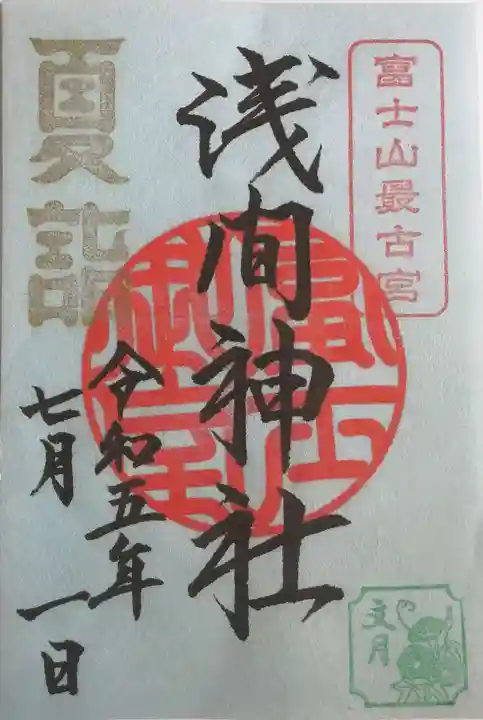 富士山最古宮
浅間神社
夏詣
令和五年
七月一日
文月